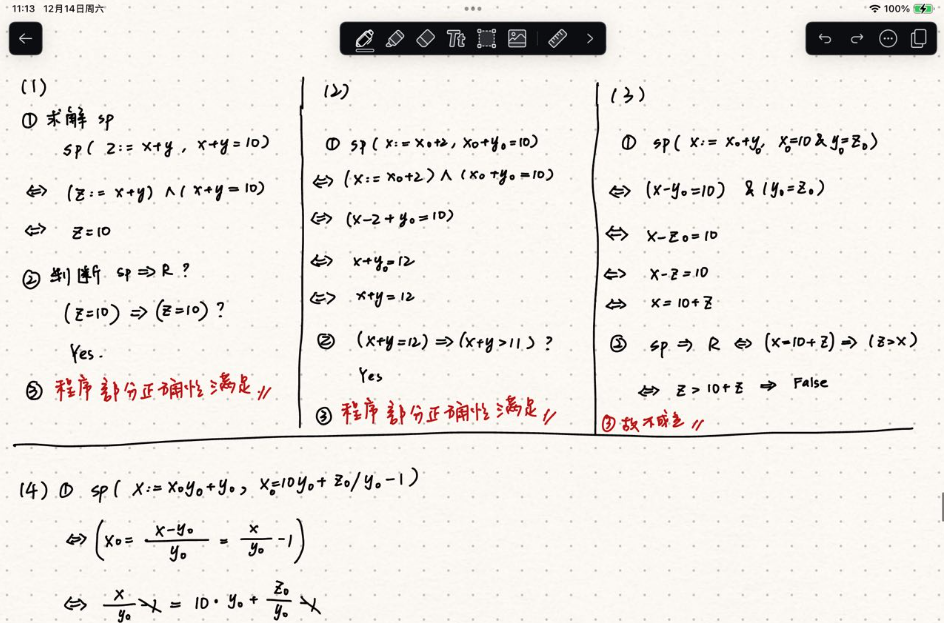 11:13 12月14日周六
100%
Tt
(1)
① 求解 sp
sp( z:= x+y , x+y=10)
⇔ (z:= x+y) ∧ (x+y=10)
⇔ z=10
② 判断 sp ⇒ R ?
(z=10) ⇒ (z=10) ?
Yes.
③ 程序部分正确性满足 //
(2)
① sp( x:= x₀+2, x₀+y₀=10)
⇔ (x:= x₀+2) ∧ (x₀+y₀=10)
⇔ (x-2+y₀=10)
⇔ x+y₀=12
⇔ x+y=12
② (x+y=12) ⇒ (x+y>11) ?
Yes
③ 程序部分正确性满足 //
(3)
① sp( x:= x₀+y₀, x₀=10 & y₀=z₀)
⇔ (x-y₀=10) & (y₀=z₀)
⇔ x-z₀=10
⇔ x-z=10
⇔ x=10+z
② sp ⇒ R ⇔ (x=10+z) ⇒ (z>x)
⇔ z>10+z ⇒ False
③ 故不成立 //
(4) ① sp( x:= x₀y₀+y₀, x₀=10y₀+z₀/y₀-1)
⇔ (x₀= (x-y₀)/y₀ = x/y₀ -1)
⇔ x/y₀ -1 = 10·y₀ + z₀/y₀ -1